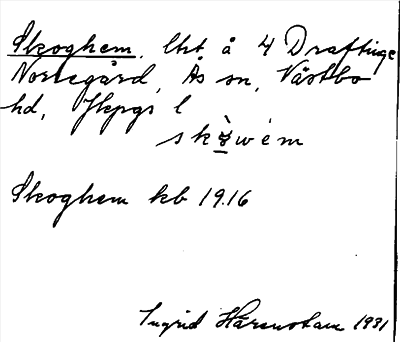 Skoghem, lht å 4 Draftinge
Norregård, Ås sn, Västbo
hd, Jkpgs l
skò̤wém
Skoghem kb 1916
Ingrid 1931